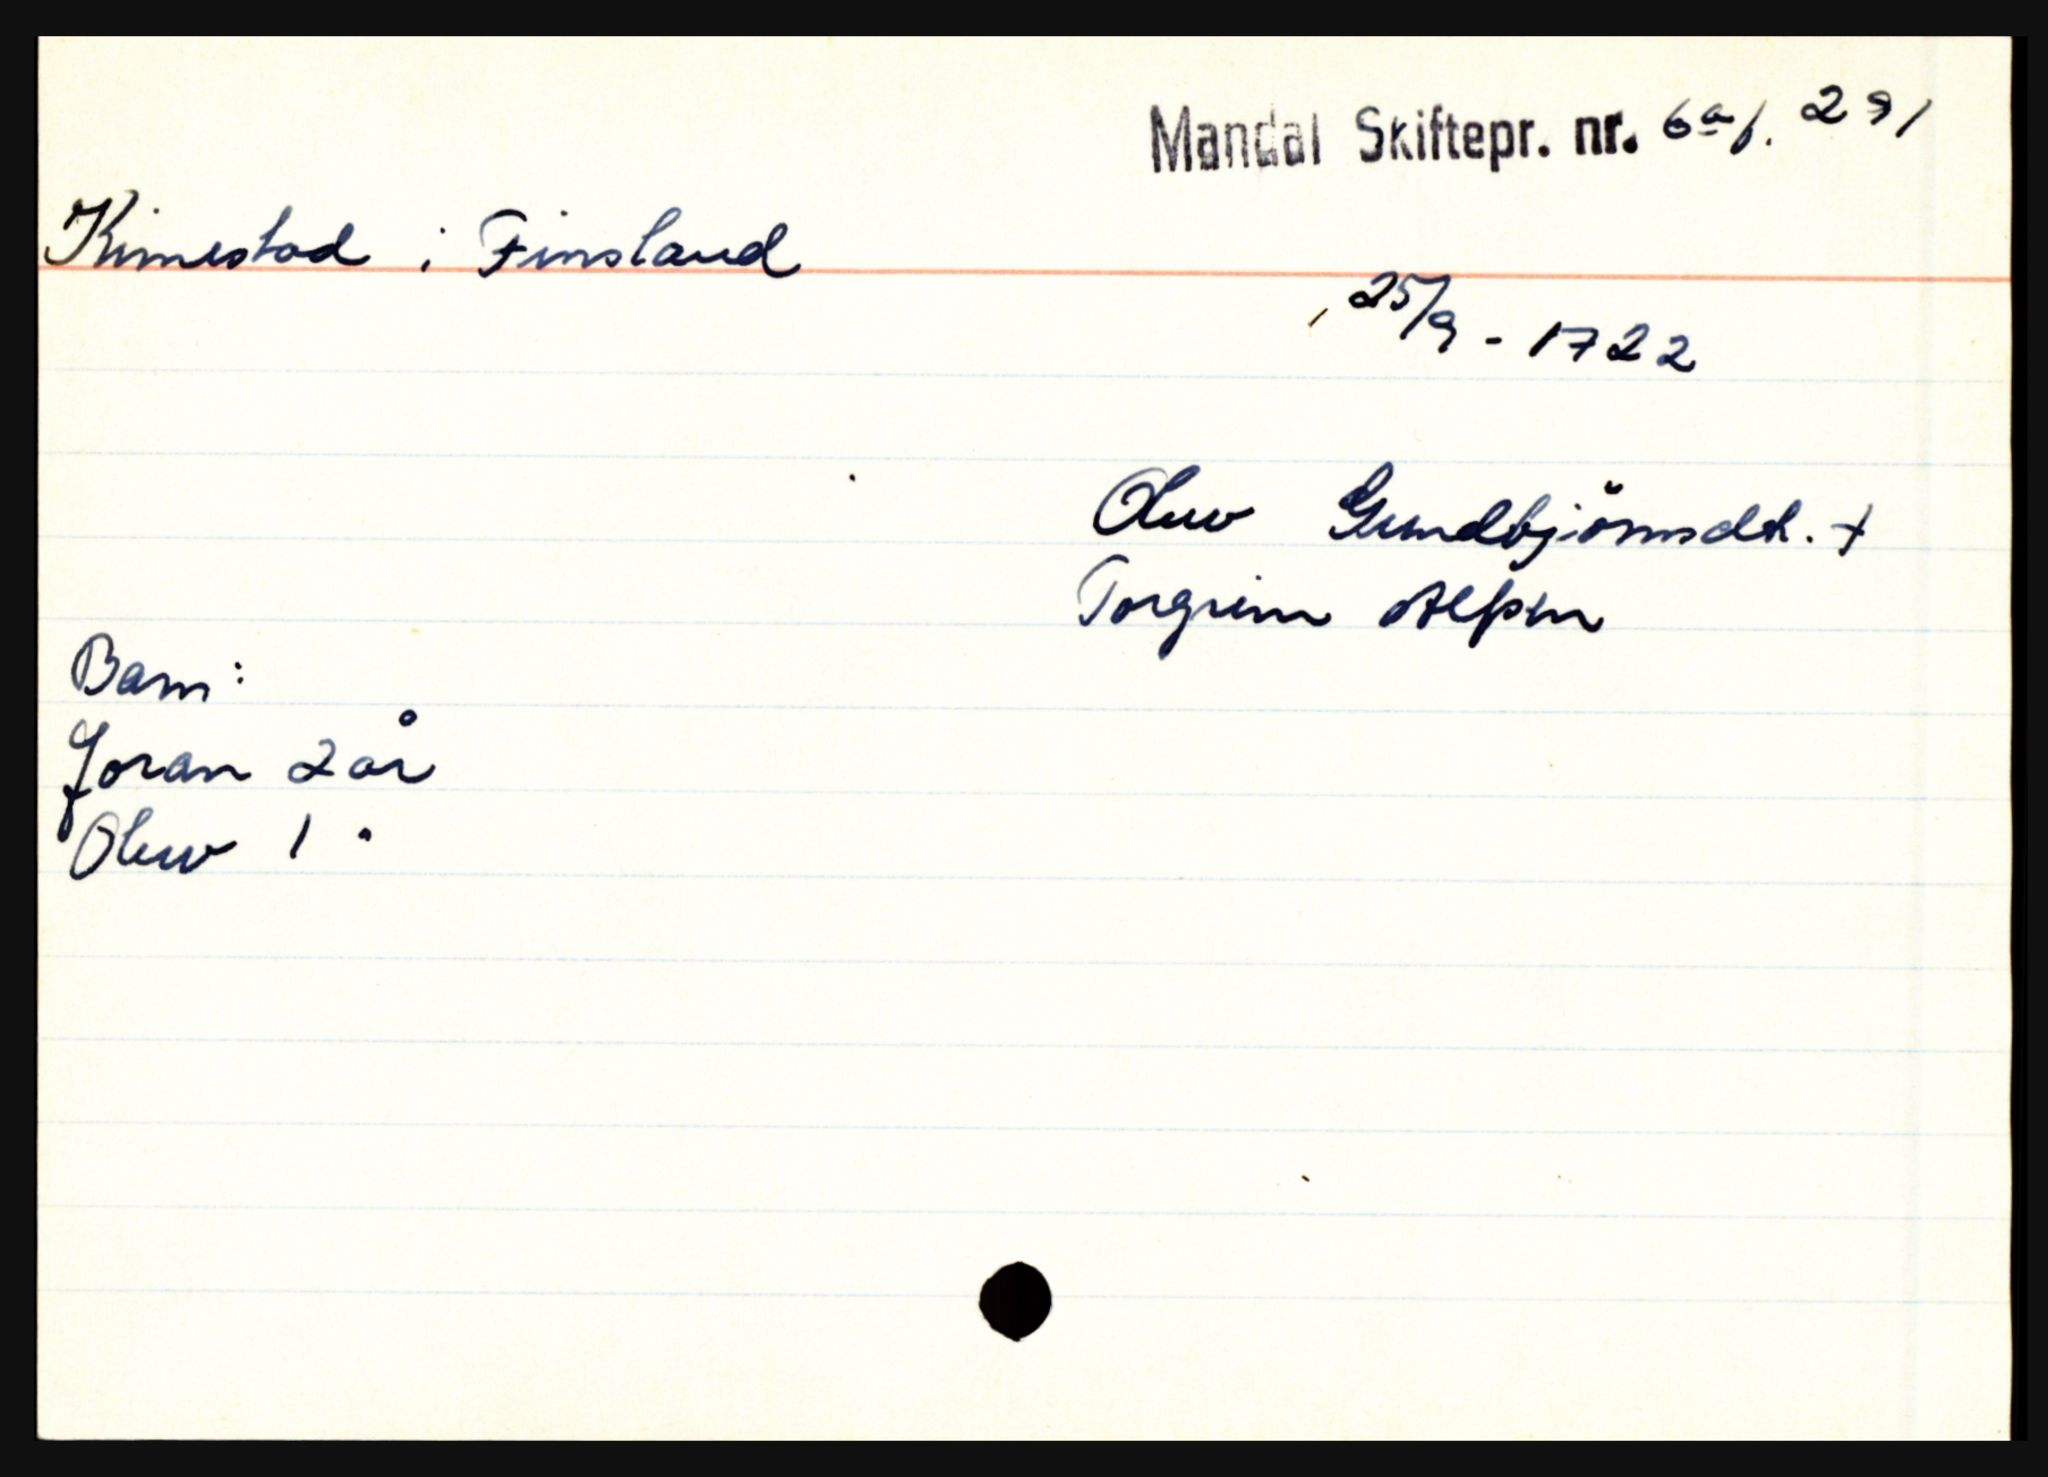 Mandal Skiftepr. nr. 6a f. 291
Kimestad i Finsland
25/9 - 1722
Oluv Gundbjörnsdt. +
Torgrim Alfsen
Barn:
Joran 2 år
Oluv 1 "